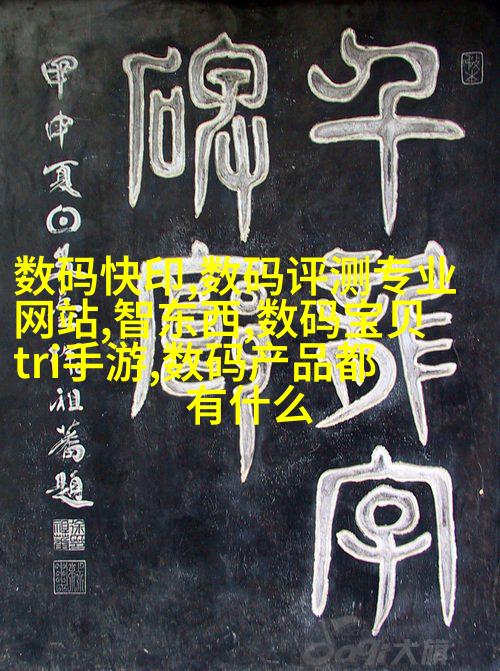 数码快印,数码评测专业
网站,智东西,数码宝贝
tri手游,数码产品都
有什么
千字
碑
甲申夏日祖蕃題